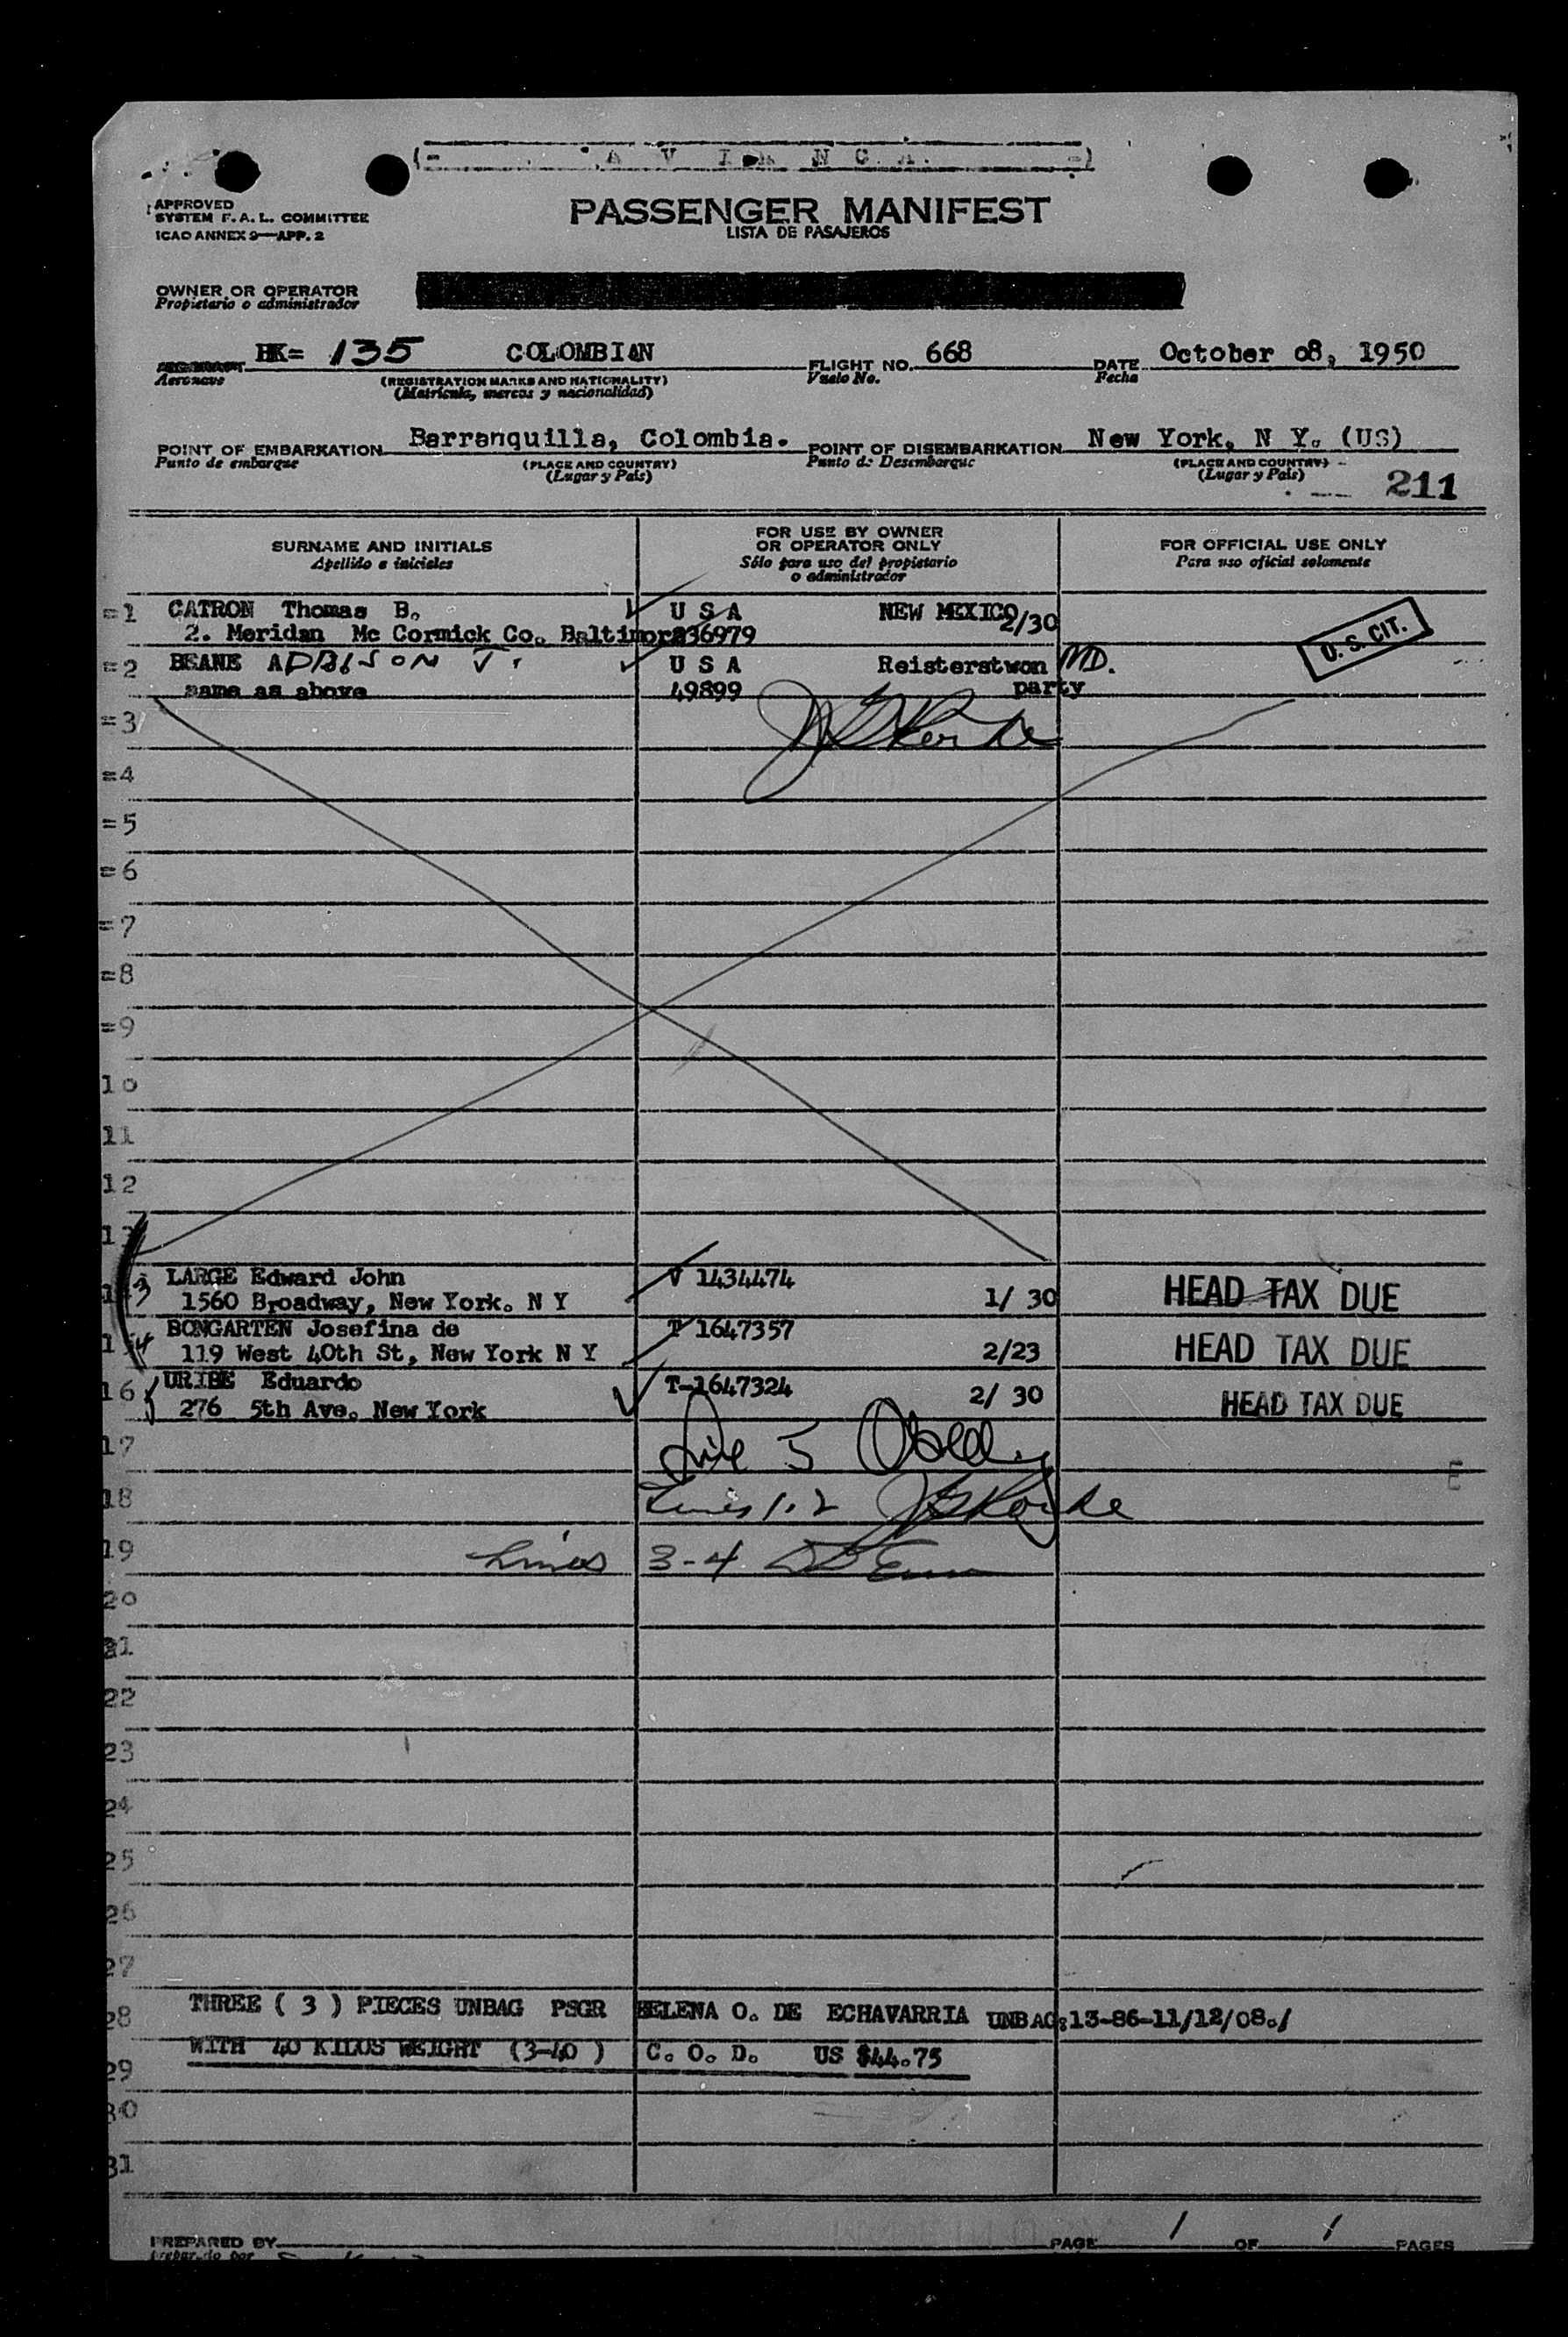 (- A V I A N C A. -)
APPROVED
SYSTEM F. A. L. COMMITTEE
ICAO ANNEX 9—APP. 2
PASSENGER MANIFEST
LISTA DE PASAJEROS
OWNER OR OPERATOR
Propietario o administrador
HK= 135 COLOMBIAN FLIGHT NO. 668 DATE October 08, 1950
Aeronave (REGISTRATION MARKS AND NATIONALITY) Vuelo No. Fecha
(Matricula, marcas y nacionalidad)
POINT OF EMBARKATION Barranquilla, Colombia. POINT OF DISEMBARKATION New York, N Y. (US)
Punto de embarque (PLACE AND COUNTRY) Punto de Desembarque (PLACE AND COUNTRY)
(Lugar y Pais) (Lugar y Pais)
211
SURNAME AND INITIALS FOR USE BY OWNER OR OPERATOR ONLY FOR OFFICIAL USE ONLY
Apellido e iniciales Sólo para uso del propietario o administrador Para uso oficial solamente
=1 CATRON Thomas B. U S A NEW MEXICO 2/30
2. Meridan Mc Cormick Co. Baltimore 36979 U. S. CIT.
=2 BEANE ADDISON U S A Reisterstwon MD.
same as above 49899 party
=3
=4
=5
=6
=7
=8
=9
10
11
12
13
3 LARGE Edward John V 1434474
1560 Broadway, New York. N Y 1/ 30 HEAD TAX DUE
4 BONGARTEN Josefina de T 1647357
119 West 40th St, New York N Y 2/23 HEAD TAX DUE
16 URIBE Eduardo T-1647324
276 5th Ave. New York 2/ 30 HEAD TAX DUE
17 Line 5
18 Lines 1.2
19 Lines 3-4
20
21
22
23
24
25
26
27
28 THREE ( 3 ) PIECES UNBAG PSGR HELENA O. DE ECHAVARRIA UNBAG:13-86-11/12/08./
29 WITH 40 KILOS WEIGHT (3-40 ) C. O. D. US $44.75
30
31
PREPARED BY PAGE 1 OF 1 PAGES